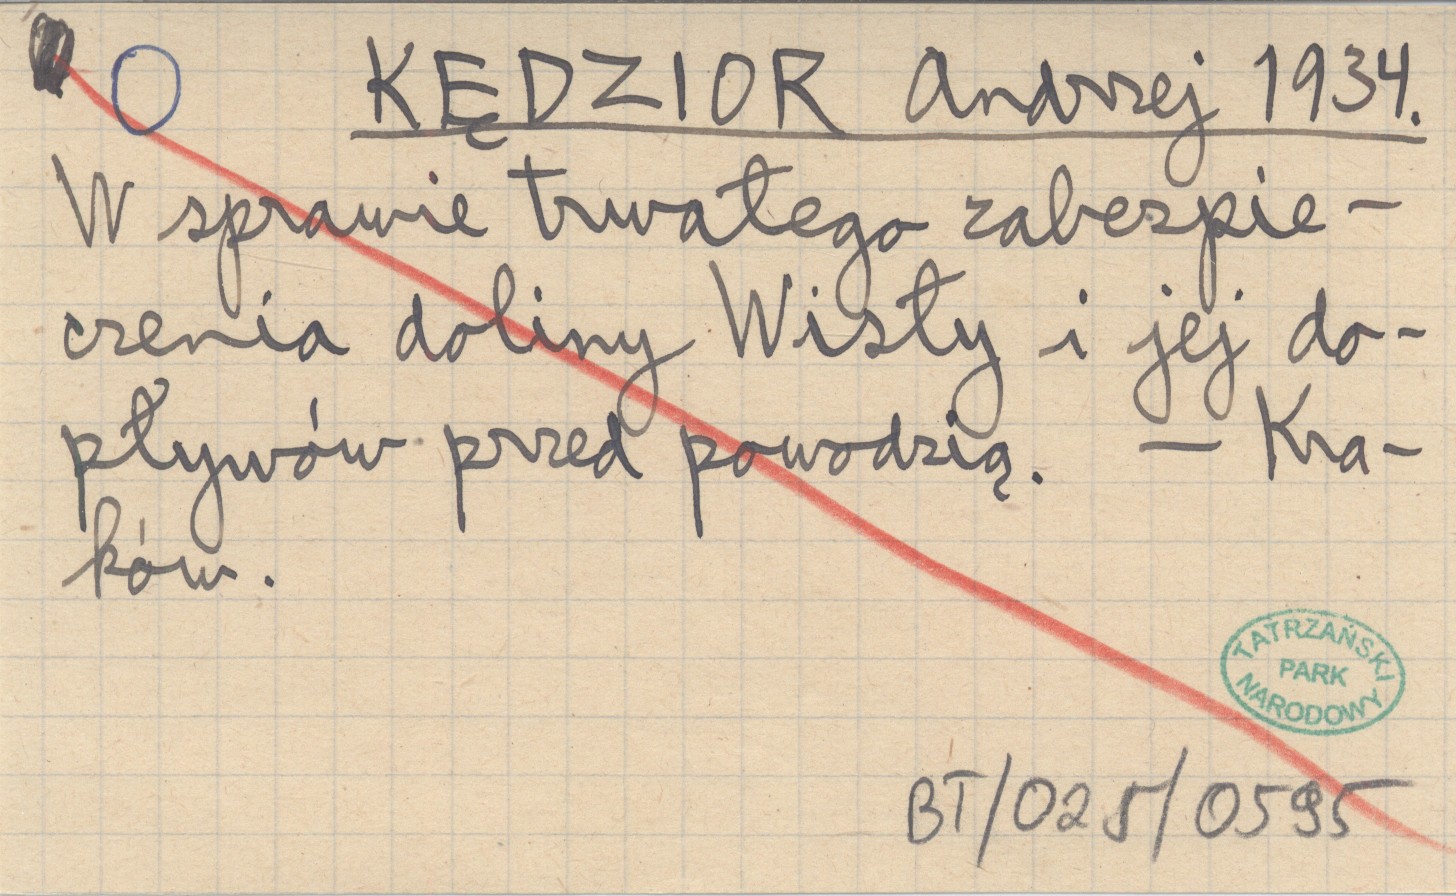 O KĘDZIOR Andrzej 1934.
W sprawie trwałego zabezpie-
czenia doliny Wisły i jej do-
pływów przed powodzią. — Kra-
ków.
TATRZAŃSKI
PARK
NARODOWY
BT/025/0595